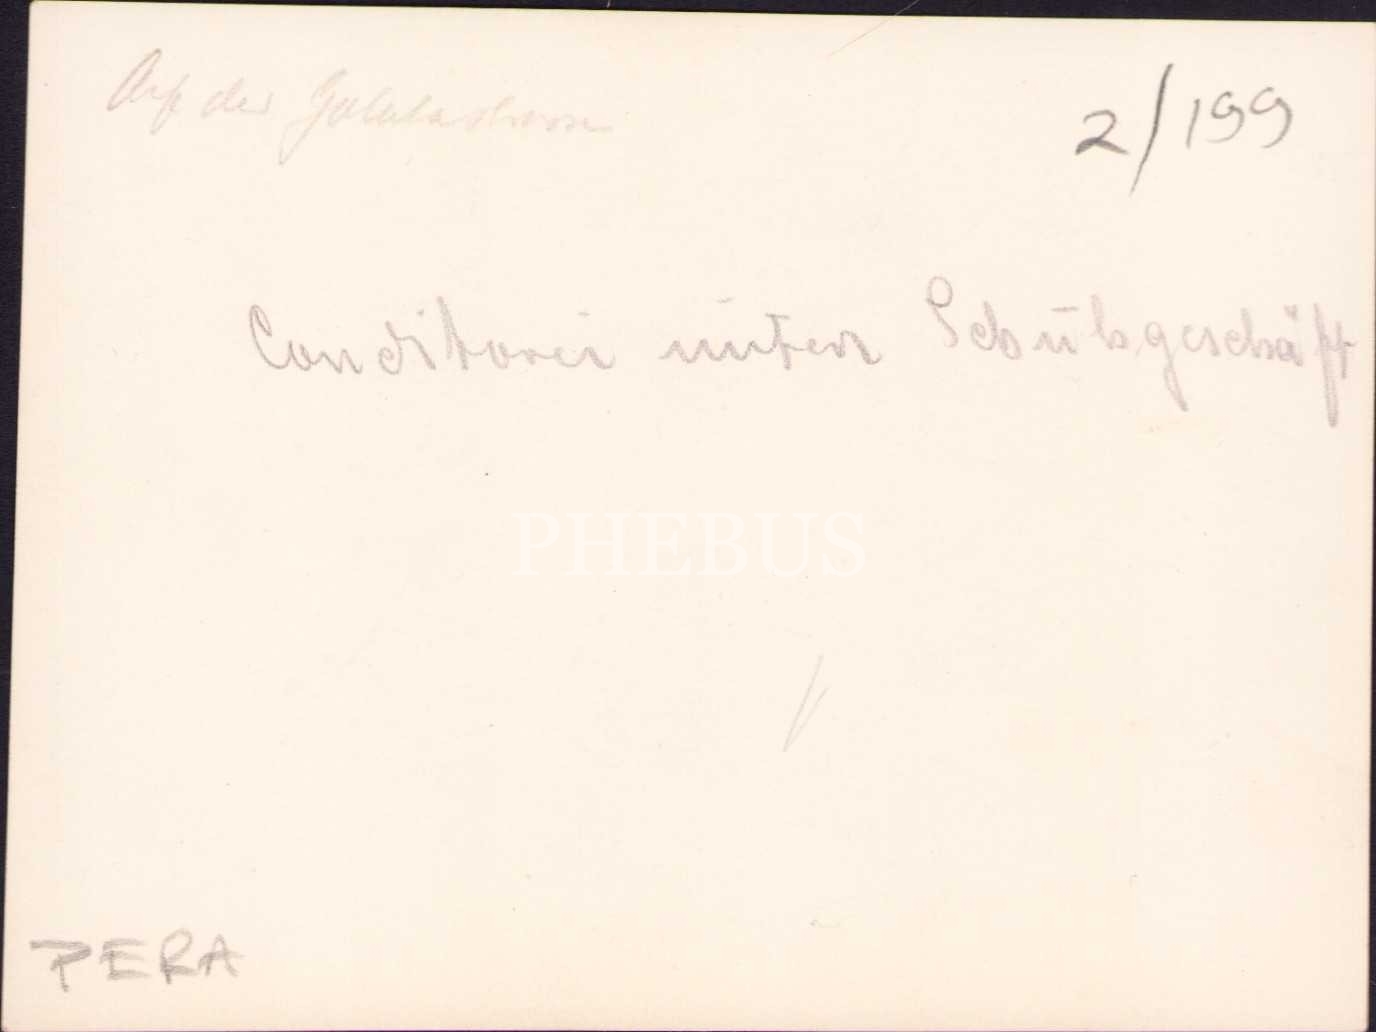 Auf der Galatastrasse
2/199
Conditorei unterm Schuhgeschäft
PHEBUS
PERA